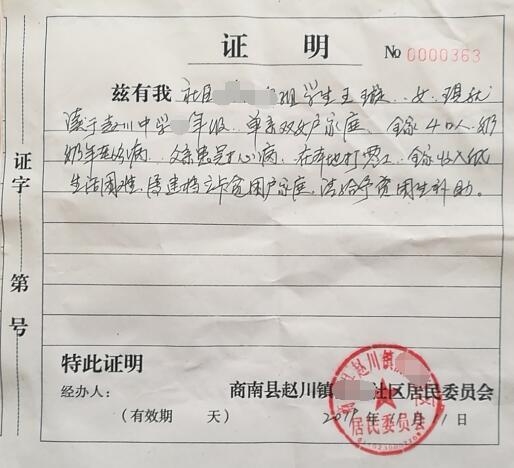 证 明
No 0000363
兹有我 社区 组学生王璇、女、现就
读于赵川中学 年级、单亲双女户家庭、全家4口人、奶
奶年老多病、父亲患有心病、在本地打零工、全家收入低
生活困难、属建档立卡贫困户家庭、请给予贫困生补助。
特此证明
经办人:
商南县赵川镇 社区居民委员会
(有效期 天)
2019年11月11日
证字 第 号
赵川镇
居民委员会